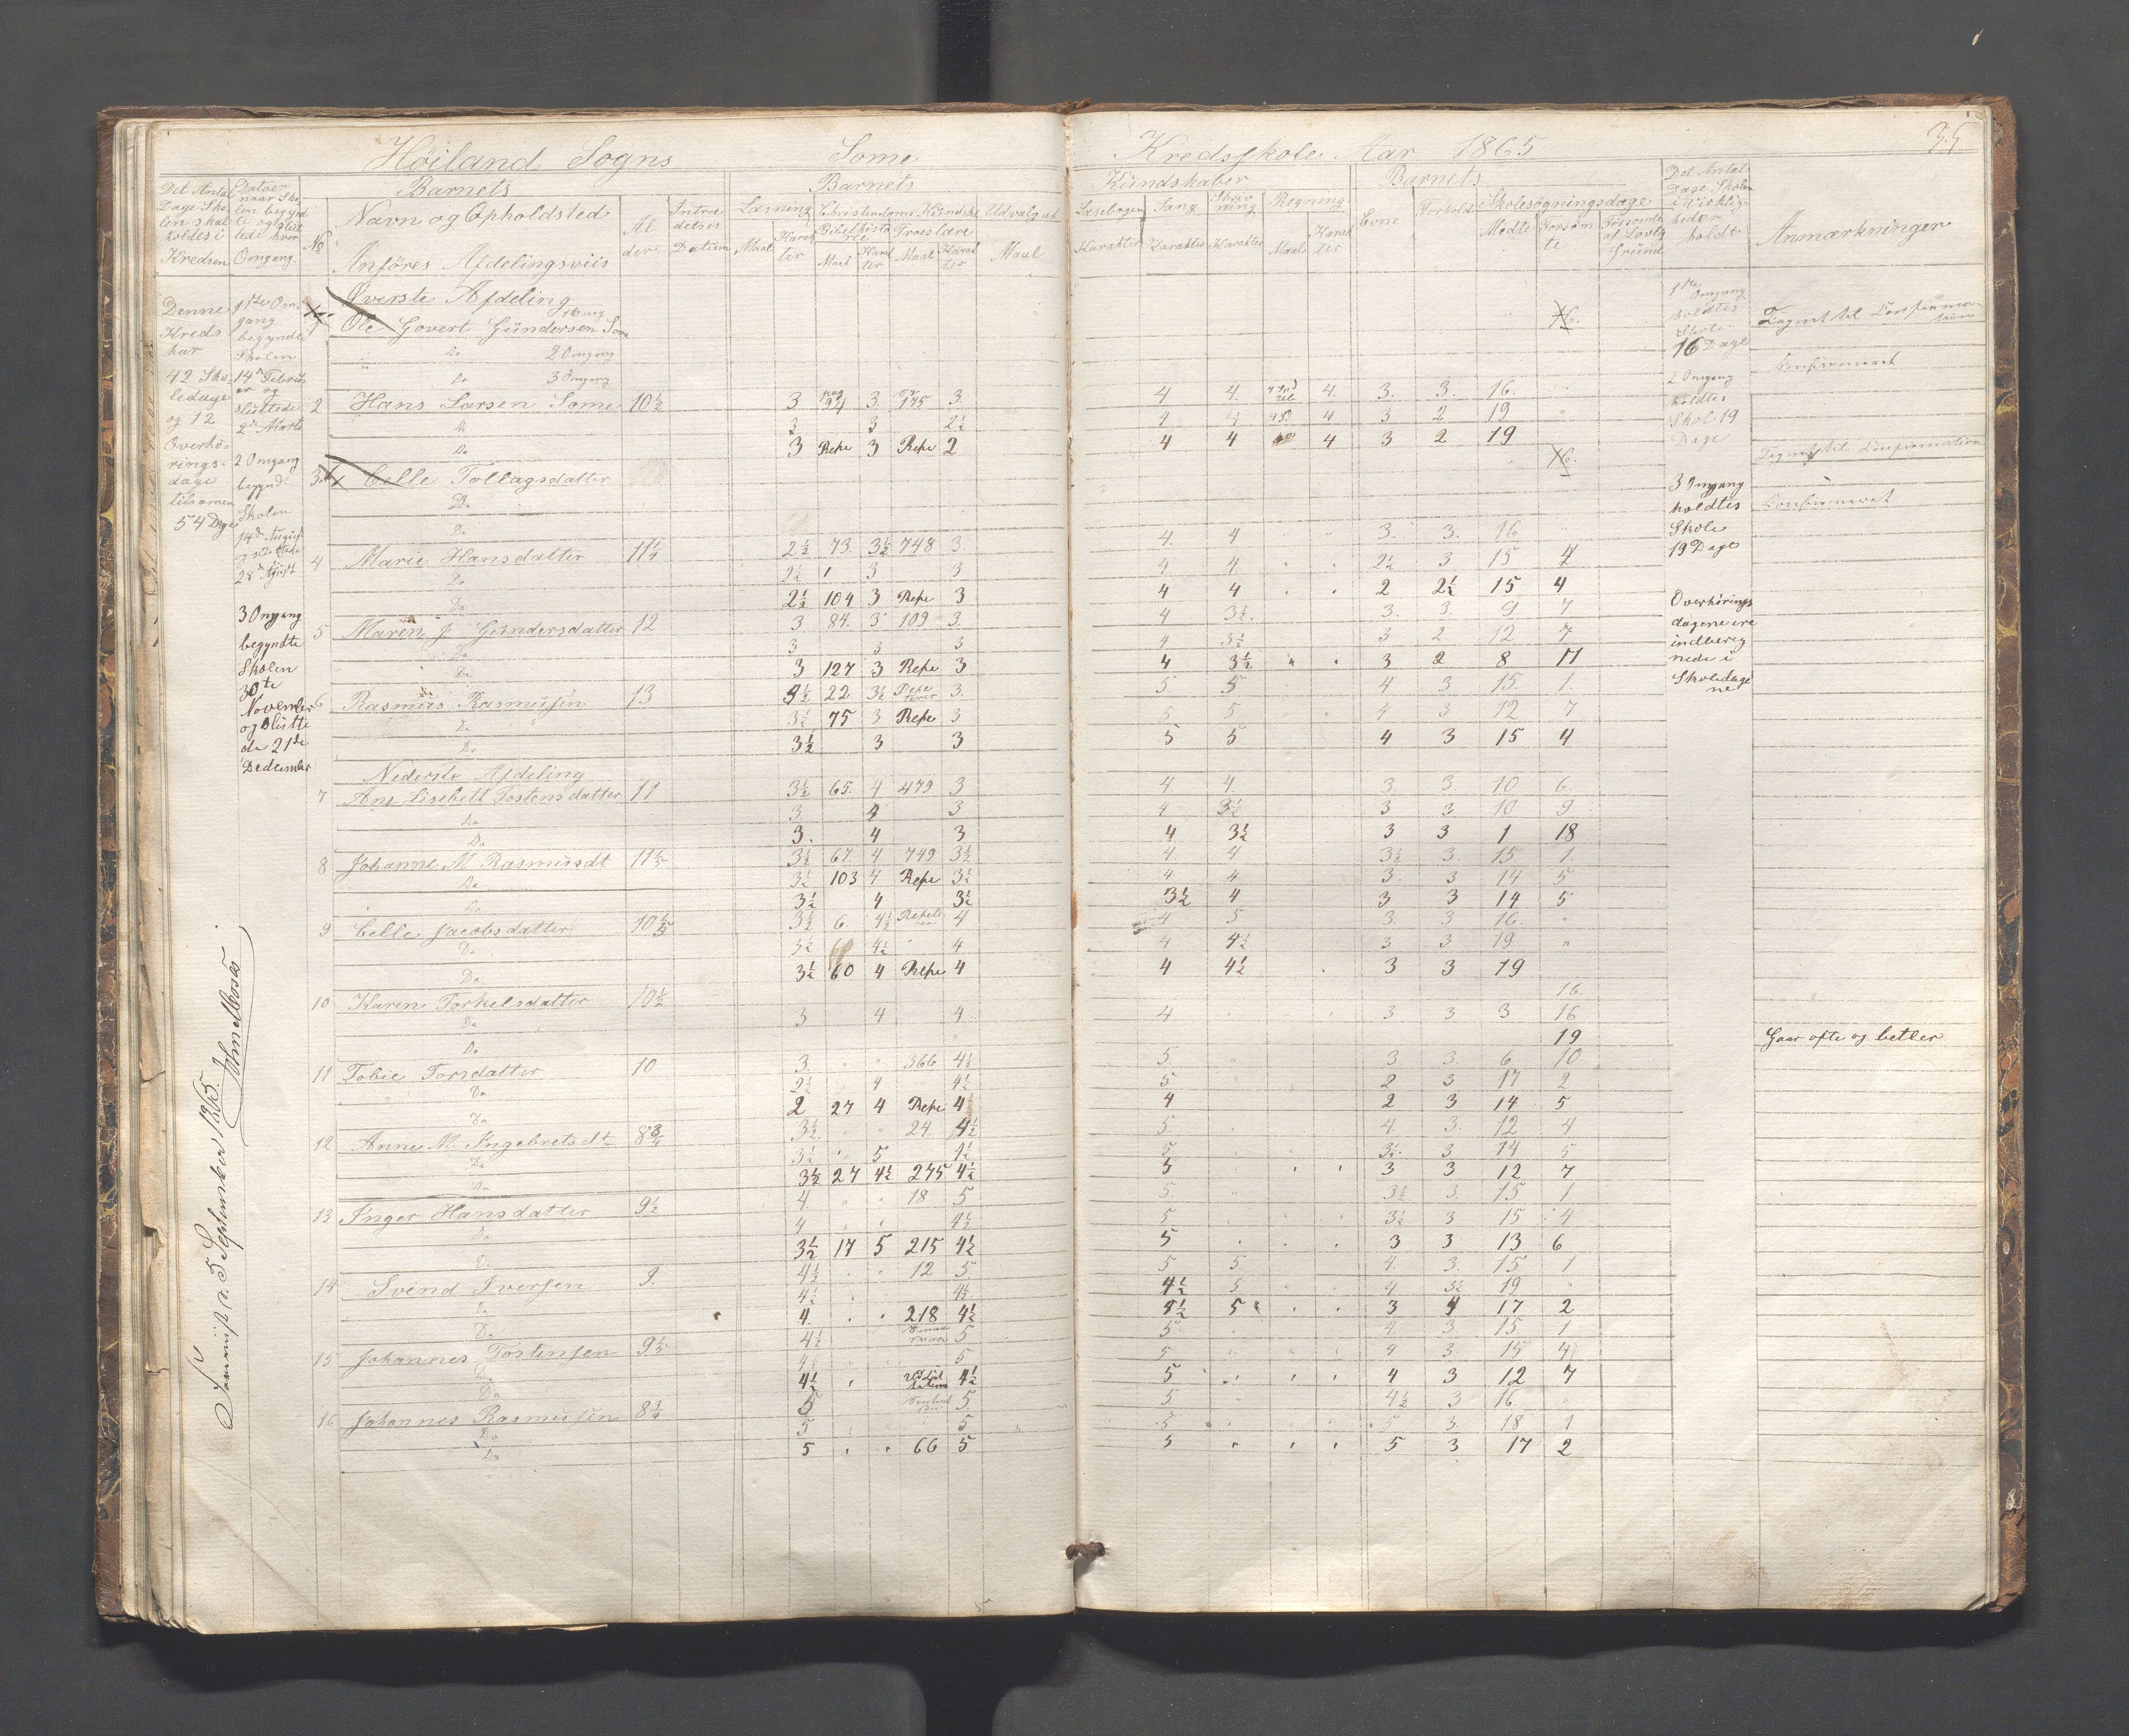 Höiland Sogns Some Kredsskole Aar 1865 35
Det Antal Dage Skolen skal holdes i Kredsen
Datoen naar Skolen begyndte og sluttede hver Omgang
No
Barnets
Navn og Opholdsted
Anföres Afdelingsviis
Alder
Intrædelses Datum
Barnets
Læsning Christendoms Kundska Udvalg af
Bibelhistorie Troeslære
Maal Harakter Maal Karakter Maal Karakter Maal
Kundskaber
Læsebogen Sang Skrivning Regning
Karakter Karakter Karakter Maal Karakter
Barnets
Evne Forhold Skolesögningsdage
Mödte Forsömte Forsömte af Lovlig Grund
Det Antal Dage Skolen i Virkligheden holdt
Anmærkninger
Denne Kreds har 42 Skoledage og 12 Overhörings-dage tilsamen 54 Dage
1ste Omgang begyndte Skolen 14de Februar og sluttede 2de Marts
2 Omgang begynd. Skolen 14de August og sluttede 28de August
3 Omgang begyndte Skolen 30te November og sluttede 21de Dedcember
Øverste Afdeling
1 Ole Govert Gundersen Some 1 Omg
Do 2 Omgang
Do 3 Omgang
2 Hans Larsen Some 10½ 3 94 3. 175 3. 4 4. 4. 3. 3. 16. "
Do 3 3 2½ 4 4 4 3 2 19 "
Do 3 Repe 3 Repe 2 4 4 4 3 2 19
3 Celle Tollagsdatter
Do
Do
4 Marie Hansdatter 11¼ 2½ 73. 3½ 748 3. 4. 4 3. 3. 16
Do 2½ 3 3 4 4 2½ 3 15 4
Do 2½ 104 3 Repe 3 4 4 2 2½ 15 4
5 Maren J Gundersdatter 12 3 84. 3 109 3. 4 3½. 3. 3. 9 7
Do 3 3 3 4 3½ 3 2 12 7
Do 3 127 3 Repe 3 4 3½ 3 2 8 11
6 Rasmus Rasmussen 13 4½ 22 3½ Repeterer 3. 5 5 4 3 15. 1.
Do 3½ 75 3 Repe 3 5 5 4 3 12 7
Do 3½ 3 3 5 5 4 3 15 4
Nederste Afdeling
7 Ane Lisebeth Tostensdatter 11 3½ 65. 4 479 3 4 4. 3. 3. 10 6.
Do 3 4 3 4 3½ 3 3 10 9
Do 3. 4 3 4 3½ 3 3 1 18
8 Johanne M Rasmusdt 3½ 67. 4 749 3½ 4. 4 3½ 3. 15 1.
Do 3½ 103 4 Repe 3½ 4 4 3. 3 14 5
Do 3½ 4 3½ 3½ 4 3 3 14 5
9 Celle Jacobsdatter 3½ 6. 4½ 4 4 5 3. 3 16. "
Do 3½ 4½ 4 4 4½ 3 3 19 "
Do 3½ 60 4 Repe 4 4 4½ 3 3 19
10 Karen Torkelsdatter 10½ 16.
Do 3 4 4 4 3 3 3 16
Do 19 Gaar ofte og betler
11 Tobie Torsdatter 10 3. " " 366 4½ 5 3 3. 6 10
Do 2½ 4 4½ 5 2 3 17 2
Do 2 27 4 Repe 4 4 2 3 14 5
12 Anne M. Ingebretsdt 8¾ 3½ " " 24. 4½ 5 4. 3. 12 4
Do 3½ 5 4½ 5 3½ 3 14 5
Do 3½ 27 4½ 275 4½ 5 3 3 12 7
13 Inger Hansdatter 9½ 4. " " 18 5 5. 3½ 3. 15 1
Do 4 4½ 5 3½ 3 15 4
Do 3½ 17 5 215 4½ 5 3 3 13 6
14 Svend Iversen 9. 4½ " " 12 5 5 5. 4. 3. 15 1
Do 4½ 4½ 4½ 5 4 3½ 19 "
Do 4. 218 4½ 4½ 5 3 4 17 2
15 Johannes Tostensen 4½ 5 5. 4. 3. 15 1
Do 4½ 5 5 4 3 15 4
Do 4½ 4½ 5 4 3 12 7
16 Johannes Rasmussen 8¾ 5 5. 5 4½ 3 16. "
Do 5 5 5 5 3. 18 1
Do 5 66 5 5 5 3 17 2
1ste Omgang holdtes Skole 16 Dage
2 Omgang holdtes Skol. 19 Dage
3 Omgang holdtes Skole 19 Dage
Overhörings dagene ere indberegnede i Skoledagene
Tegnet til Confirmation
Confirmeret
Tegnet til Confirmation
Confirmeret
d. 5 September 1865.